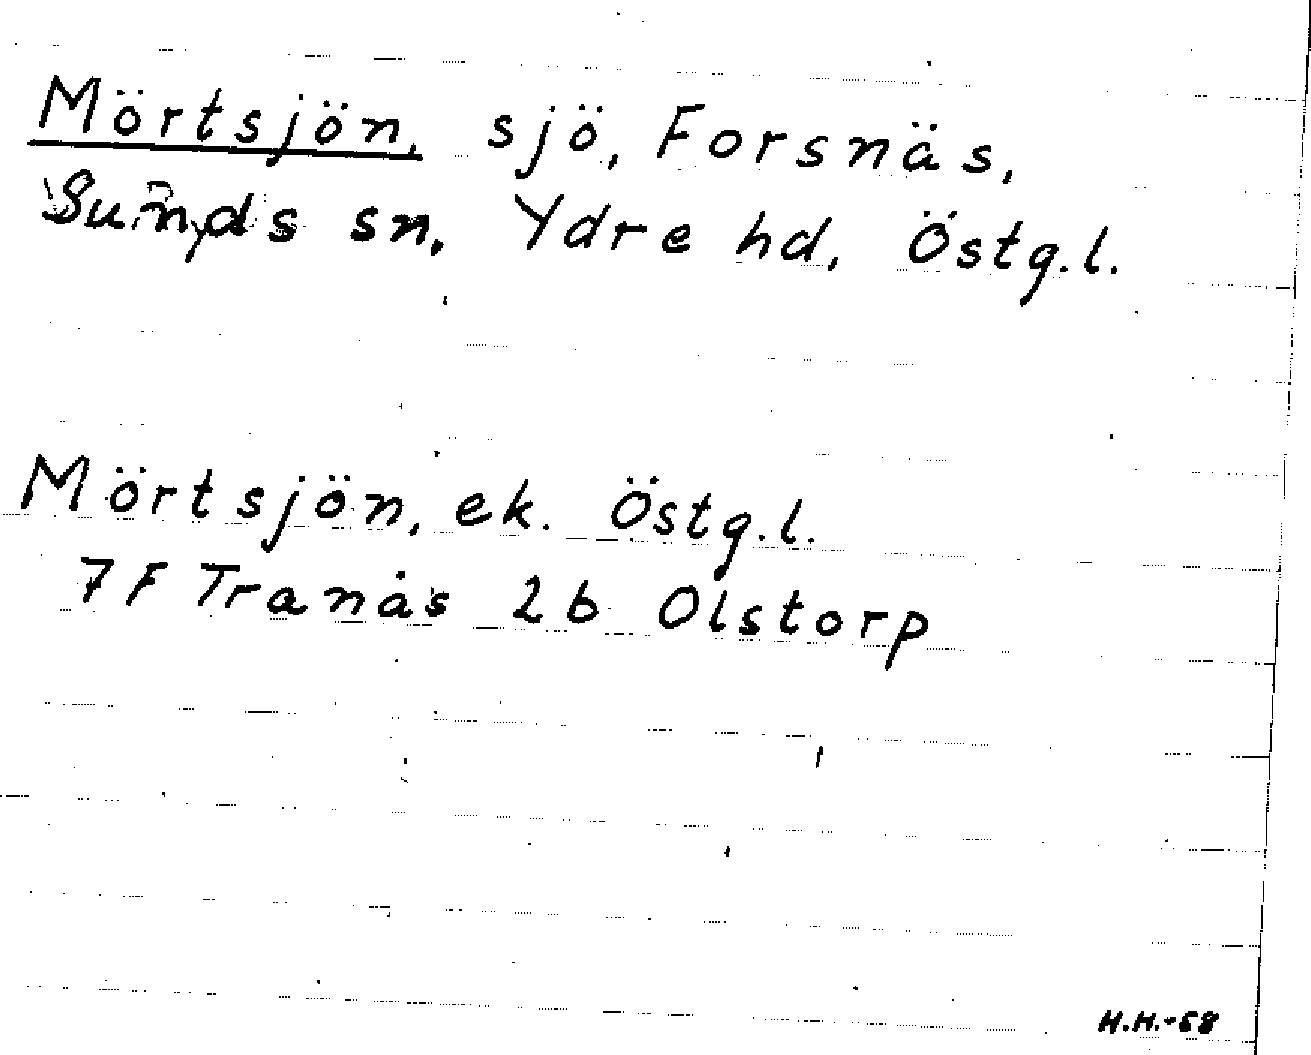 Mörtsjön, sjö, Forsnäs,
Sunds sn, Ydre hd, Östg.l.
Mörtsjön, ek. Östg.l.
7F Tranås 2b Olstorp
H.H.-58